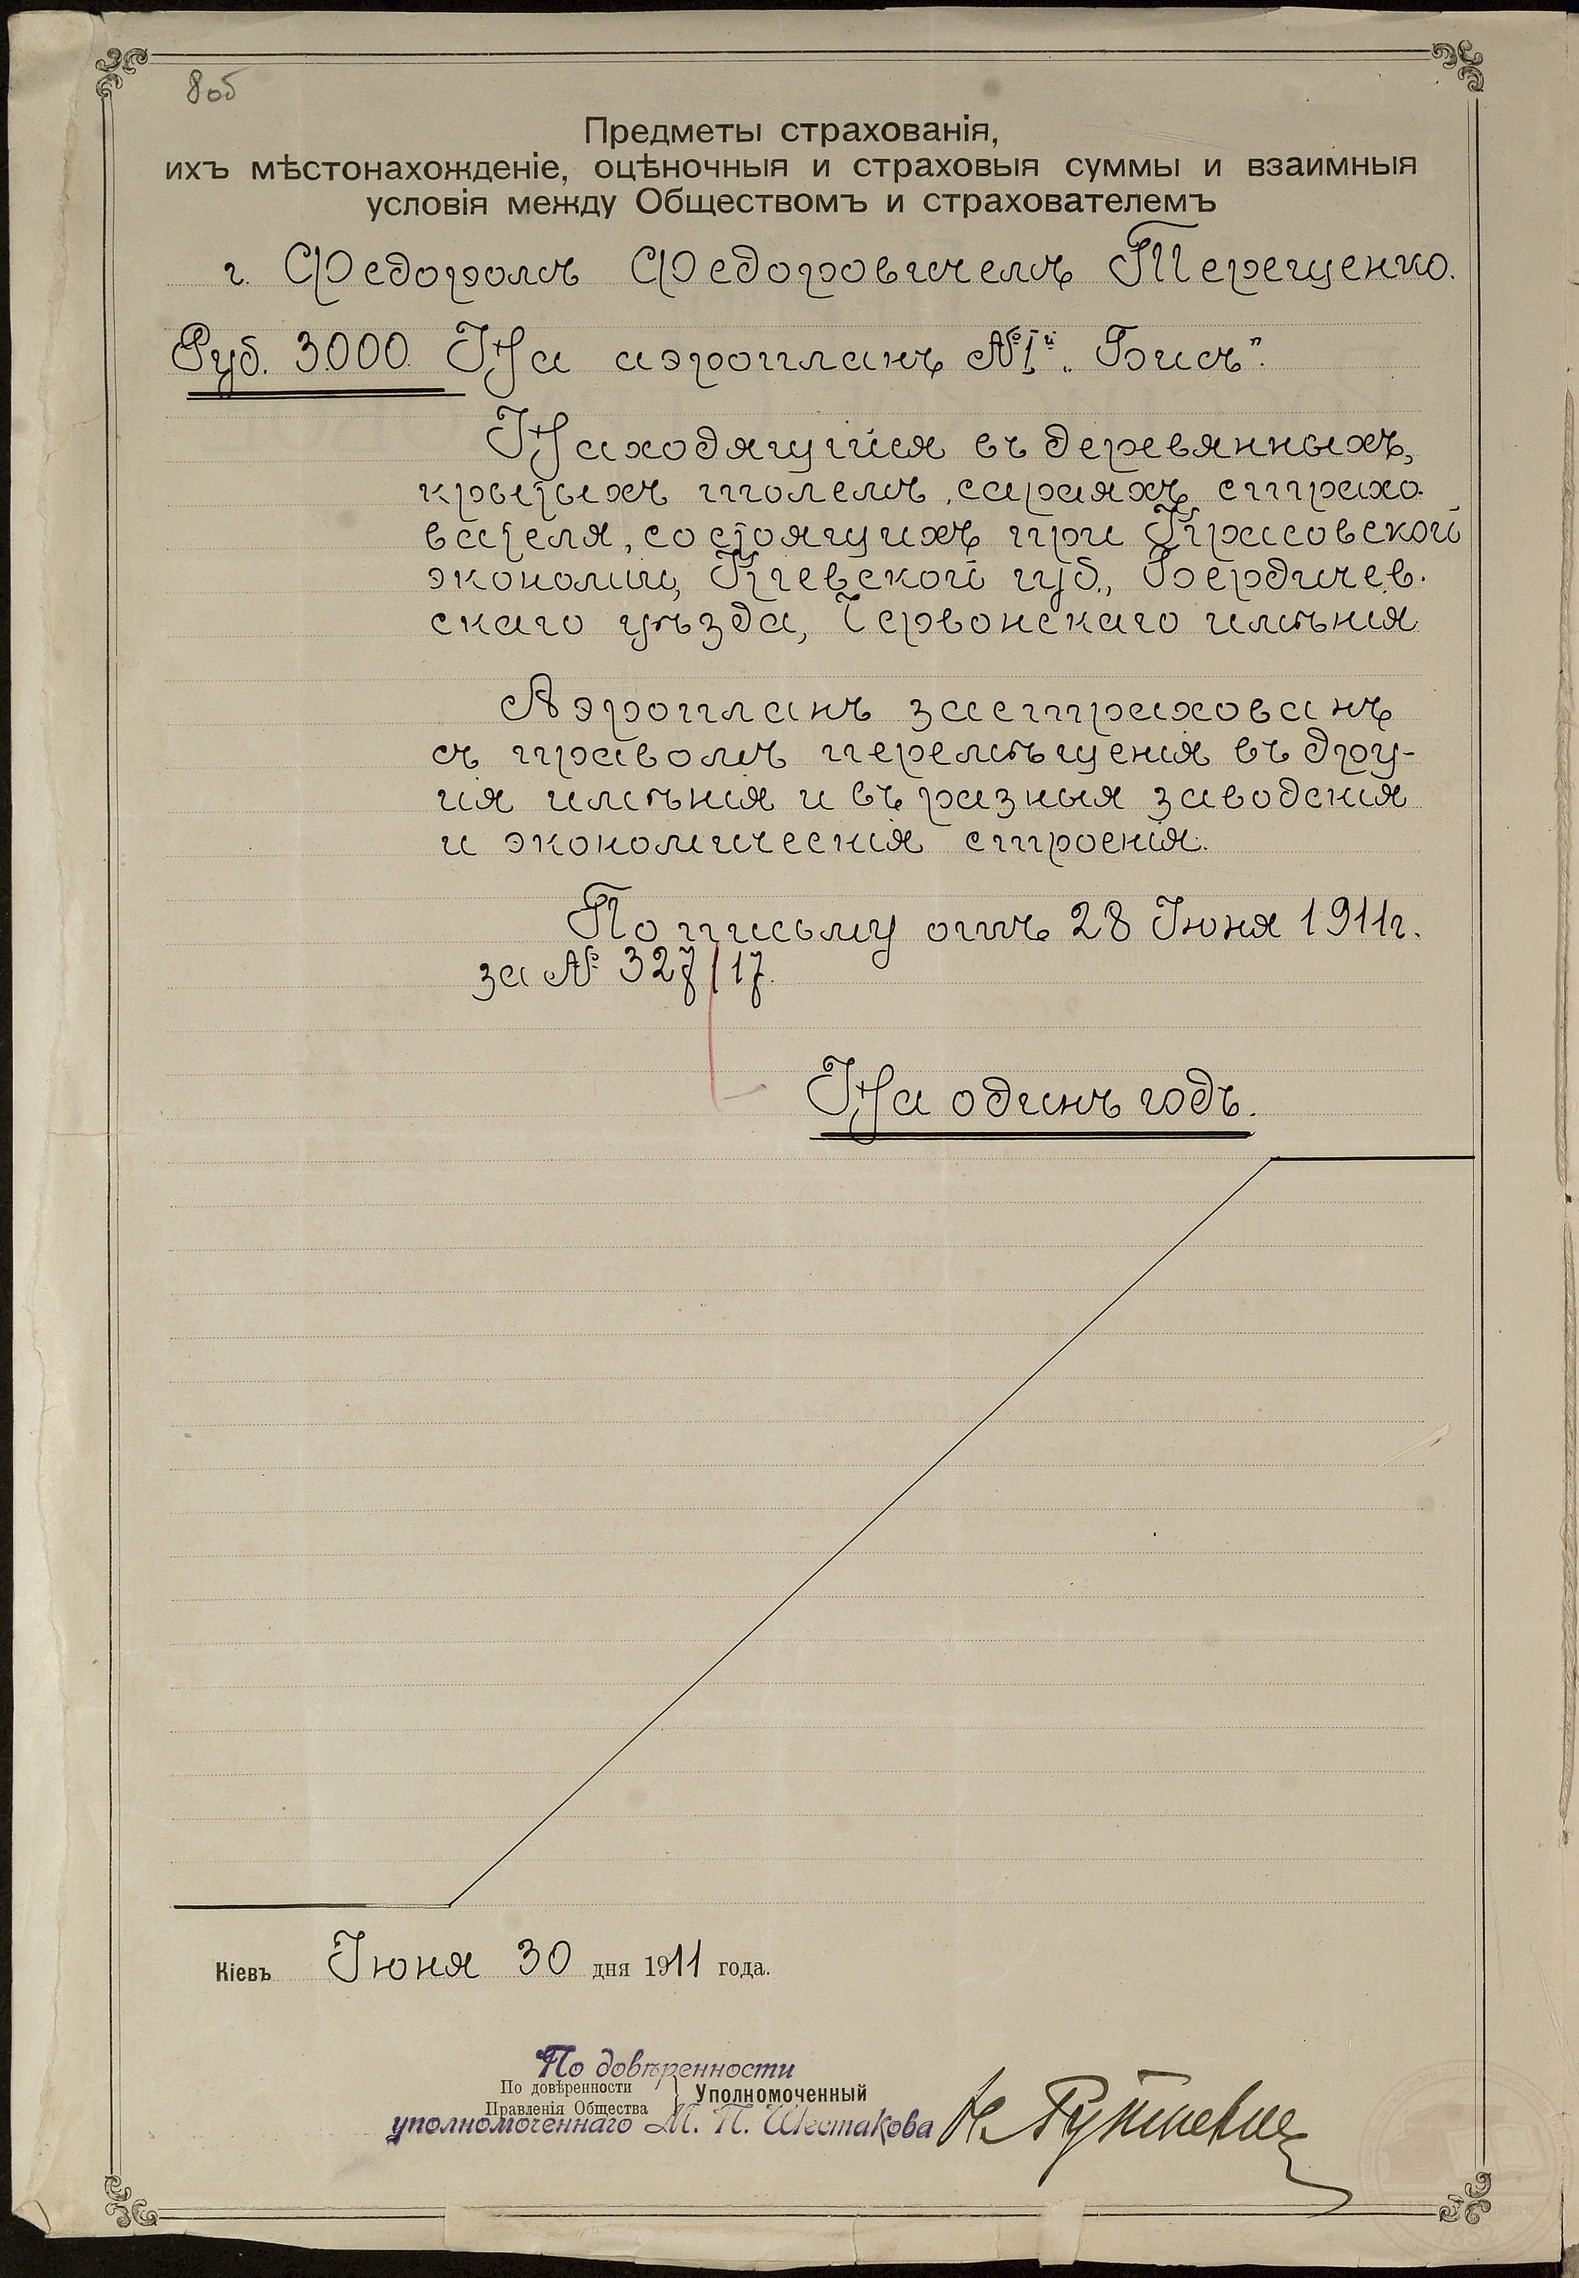 8об
Предметы страхованія,
ихъ мѣстонахожденіе, оцѣночныя и страховыя суммы и взаимныя
условія между Обществомъ и страхователемъ
г. Федоромъ Федоровичемъ Терещенко.
Руб. 3000. На аэропланъ №1й „Бисъ".
Находящийся въ деревянныхъ,
крытыхъ толемъ, сараяхъ страхо-
вателя, состоящихъ при Красовской
экономіи, Кіевской губ., Бердичев-
скаго уѣзда, Червонскаго имѣнія
Аэропланъ застрахованъ
съ правомъ перемѣщенія въ дру-
гія имѣнія и въ разныя заводскія
и экономическія строенія.
По письму отъ 28 Іюня 1911г.
за № 327/17.
На одинъ годъ.
Кіевъ Іюня 30 дня 1911 года.
По довѣренности
По довѣренности
Правленія Общества } Уполномоченный
уполномоченнаго М. П. Шестакова